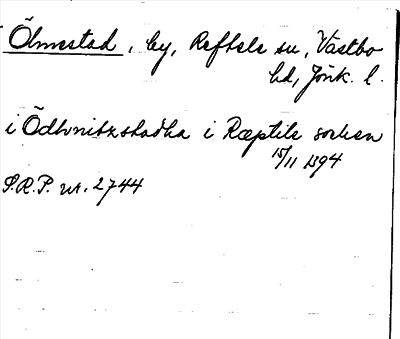 Ölmestad, by, Reftele sn, Västbo
hd, Jönk. l.
i Ödhmitzstadha i Ræptile sochen
15/11 1394
S.R.P. nr. 2744